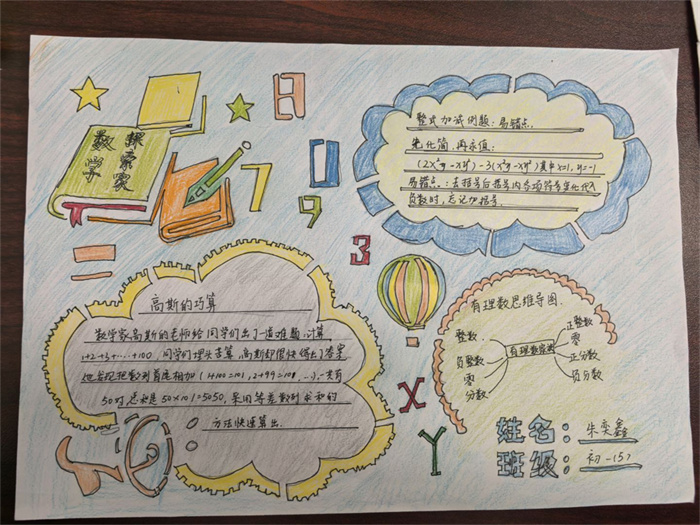 数学
探索家
8
7
0
9
3
=
X
Y
整式加减例题:易错点.
先化简,再求值:
(2x²y-xy²)-3(x²y-xy²)其中x=1,y=-1
易错点:去括号后括号内各项符号变化代入
负数时,忘记加括号.
高斯的巧算
数学家高斯的老师给同学们出了一道难题,计算
1+2+3+……+100,同学们埋头苦算,高斯却很快得出了答案
他发现把数列首尾相加(1+100=101,2+99=101,…),一共有
50对总和是50×101=5050,采用等差数列求和的
方法快速算出.
有理数思维导图.
整数
负整数
零
分数
有理数
正整数
零
正分数
负分数
姓名:朱奕鑫
班级:初一(5)